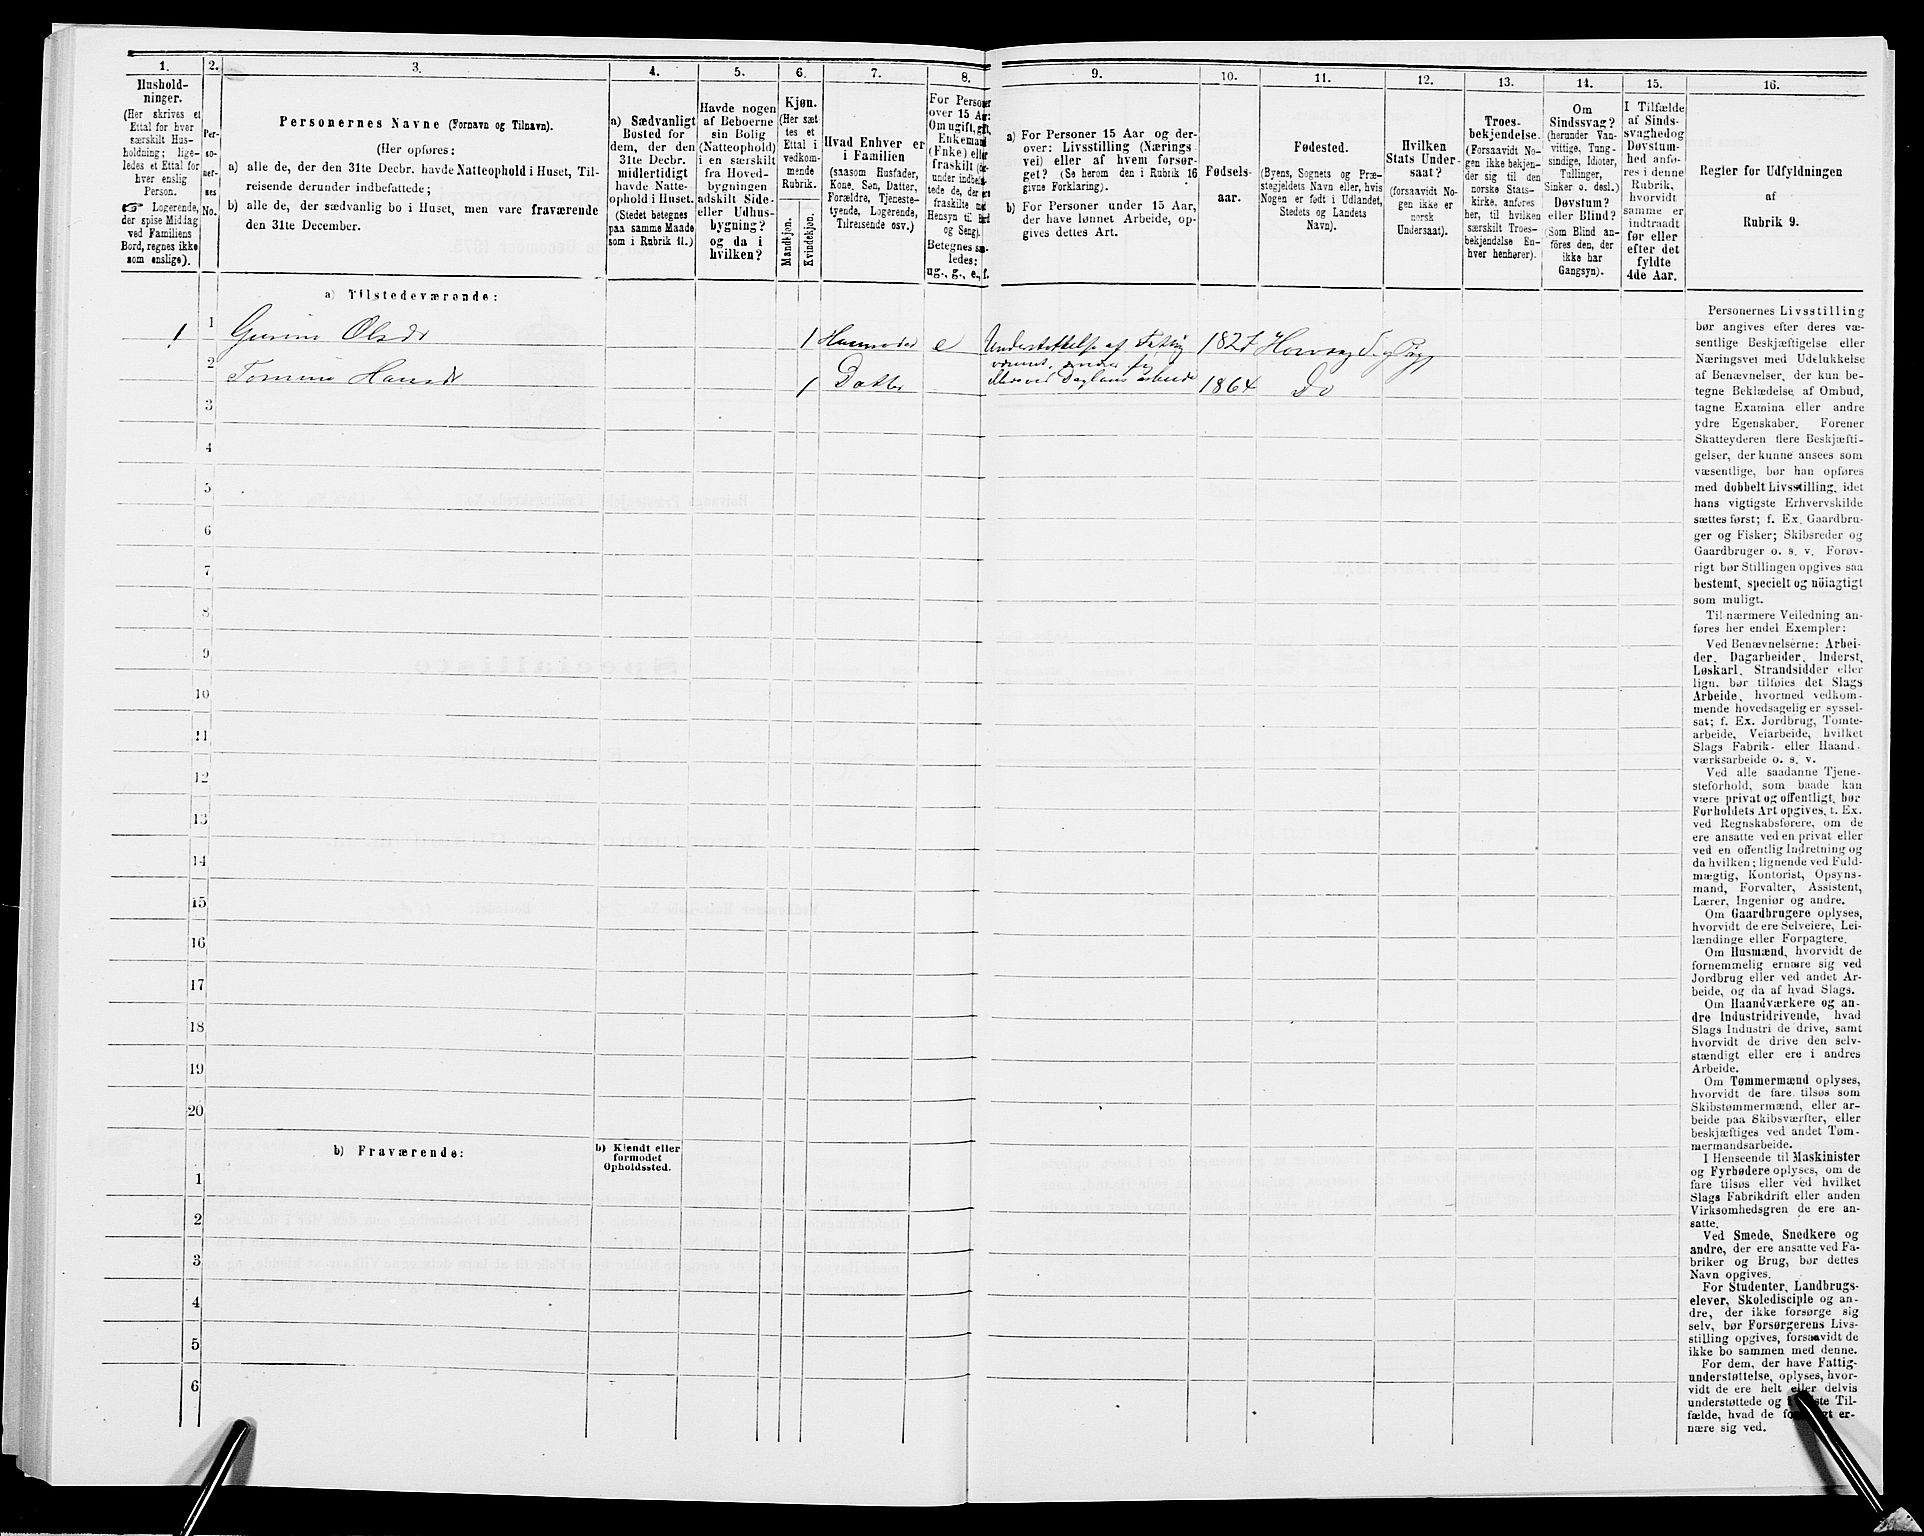 1.
Hushold-
ninger.
(Her skrives et
Ettal for hver
særskilt Hus-
holdning; lige-
ledes et Ettal for
hver enslig
Person.
☞ Logerende,
der spise Middag
ved Familiens
Bord, regnes ikke
som enslige).
2.
Per-
so-
ner-
nes
No.
3.
Personernes Navne (Fornavn og Tilnavn).
(Her opføres:
a) alle de, der den 31te Decbr. havde Natteophold i Huset, Til-
reisende derunder indbefattede;
b) alle de, der sædvanlig bo i Huset, men vare fraværende
den 31te December.
4.
a) Sædvanligt
Bosted for
dem, der den
31te Decbr.
midlertidigt
havde Natte-
ophold i Huset.
(Stedet betegnes
paa samme Maade
som i Rubrik 11.)
5.
Havde nogen
af Beboerne
sin Bolig
(Natteophold)
i en særskilt
fra Hoved-
bygningen
adskilt Side-
eller Udhus-
bygning?
og da i
hvilken?
6.
Kjøn.
(Her sæt-
tes et
Ettal i
vedkom-
mende
Rubrik.
Mandkjøn.
Kvindekjøn.
7.
Hvad Enhver er
i Familien
(saasom Husfader,
Kone, Søn, Datter,
Forældre, Tjeneste-
tyende, Logerende,
Tilreisende osv.)
8.
For Personer
over 15 Aar:
Om ugift, gift,
Enkemand
(Enke) eller
fraskilt
Betegnes saa-
ledes:
ug., g., e., f.
9.
a) For Personer 15 Aar og der-
over: Livsstilling (Nærings
vei) eller af hvem forsør-
get? (Se herom den i Rubrik 16
givne Forklaring).
b) For Personer under 15 Aar,
der have lønnet Arbeide, op-
gives dettes Art.
10.
Fødsels-
aar.
11.
Fødested.
(Byens, Sognets og Præ-
stegjeldets Navn eller, hvis
Nogen er født i Udlandet,
Stedets og Landets
Navn).
12.
Hvilken
Stats Under-
saat?
(forsaavidt No-
gen ikke er
norsk
Undersaat).
13.
Troes-
bekjendelse.
(Forsaavidt No-
gen ikke bekjen-
der sig til den
norske Stats-
kirke, anføres
her, til hvilken
særskilt Troes-
bekjendelse En-
hver henhører).
14.
Om
Sindssvag?
(herunder Van-
vittige, Tung-
sindige, Idioter,
Tullinger,
Sinker o. desl.)
Døvstum?
eller Blind?
(Som Blind an-
føres den, der
ikke har
Gangsyn).
15.
I Tilfælde
af Sinds-
svaghed og
Døvstum-
hed anfø-
res i denne
Rubrik,
hvorvidt
samme er
indtraadt
før eller
efter det
fyldte
4de Aar.
16.
Regler for Udfyldningen
af
Rubrik 9.
a) Tilstedeværende:
1 1 Olsdr 1 e 1827
2 Hansdr 1 Datter 1864 Do
3
4
5
6
7
8
9
10
11
12
13
14
15
16
17
18
19
20
b) Fraværende:
b) Kjendt eller
formodet
Opholdssted.
1
2
3
4
5
6
Personernes Livsstilling
bør angives efter deres væ-
sentlige Beskjæftigelse eller
Næringsvei med Udelukkelse
af Benævnelser, der kun be-
tegne Beklædelse af Ombud,
tagne Examina eller andre
ydre Egenskaber. Forener
Skatteyderen flere Beskjæfti-
gelser, der kunne ansees som
væsentlige, bør han opføres
med dobbelt Livsstilling, idet
hans vigtigste Erhvervskilde
sættes først; f. Ex. Gaardbru-
ger og Fisker; Skibsreder og
Gaardbruger o. s. v. Forøv-
rigt bør Stillingen opgives saa
bestemt, specielt og nöiagtigt
som muligt.
Til nærmere Veiledning an-
føres her endel Exempler:
Ved Benævnelserne: Arbei-
der, Dagarbeider, Inderst,
Løskarl, Strandsidder eller
lign. bør tilføies det Slags
Arbeide, hvormed vedkom-
mende hovedsagelig er syssel-
sat; f. Ex. Jordbrug, Tomte-
arbeide, Veiarbeide, hvilket
Slags Fabrik- eller Haand-
værksarbeide o. s. v.
Ved alle saadanne Tjene-
steforhold, som baade kan
være privat og offentligt, bør
Forholdets Art opgives, t. Ex.
ved Regnskabsførere, om de
ere ansatte ved en privat eller
ved en offentlig Indretning og
da hvilken; lignende ved Fuld-
mægtig, Kontorist, Opsyns-
mand, Forvalter, Assistent,
Lærer, Ingeniør og andre.
Om Gaardbrugere oplyses,
hvorvidt de ere Selveiere, Lei-
lændinge eller Forpagtere.
Om Husmænd, hvorvidt de
fornemmelig ernære sig ved
Jordbrug eller ved andet Ar-
beide, og da af hvad Slags.
Om Haandværkere og an-
dre Industridrivende, hvad
Slags Industri de drive, samt
hvorvidt de drive den selv-
stændigt eller ere i andres
Arbeide.
Om Tømmermænd oplyses,
hvorvidt de fare tilsøs som
Skibstømmermænd, eller ar-
beide paa Skibsværfter, eller
beskjæftiges ved andet Tøm-
mermandsarbeide.
I Henseende til Maskinister
og Fyrbødere oplyses, om de
fare tilsøs eller ved hvilket
Slags Fabrikdrift eller anden
Virksomhedsgren de ere an-
satte.
Ved Smede, Snedkere og
andre, der ere ansatte ved Fa-
briker og Brug, bør dettes
Navn opgives.
For Studenter, Landbrugs-
elever, Skoledisciple og an-
dre, der ikke forsørge sig
selv, bør Forsørgerens Livs-
stilling opgives, forsaavidt de
ikke bo sammen med denne.
For dem, der have Fattig-
understøttelse, oplyses, hvor-
vidt de ere helt eller delvis
understøttede og i Til-
fælde, hvad de er-
nære sig ved.